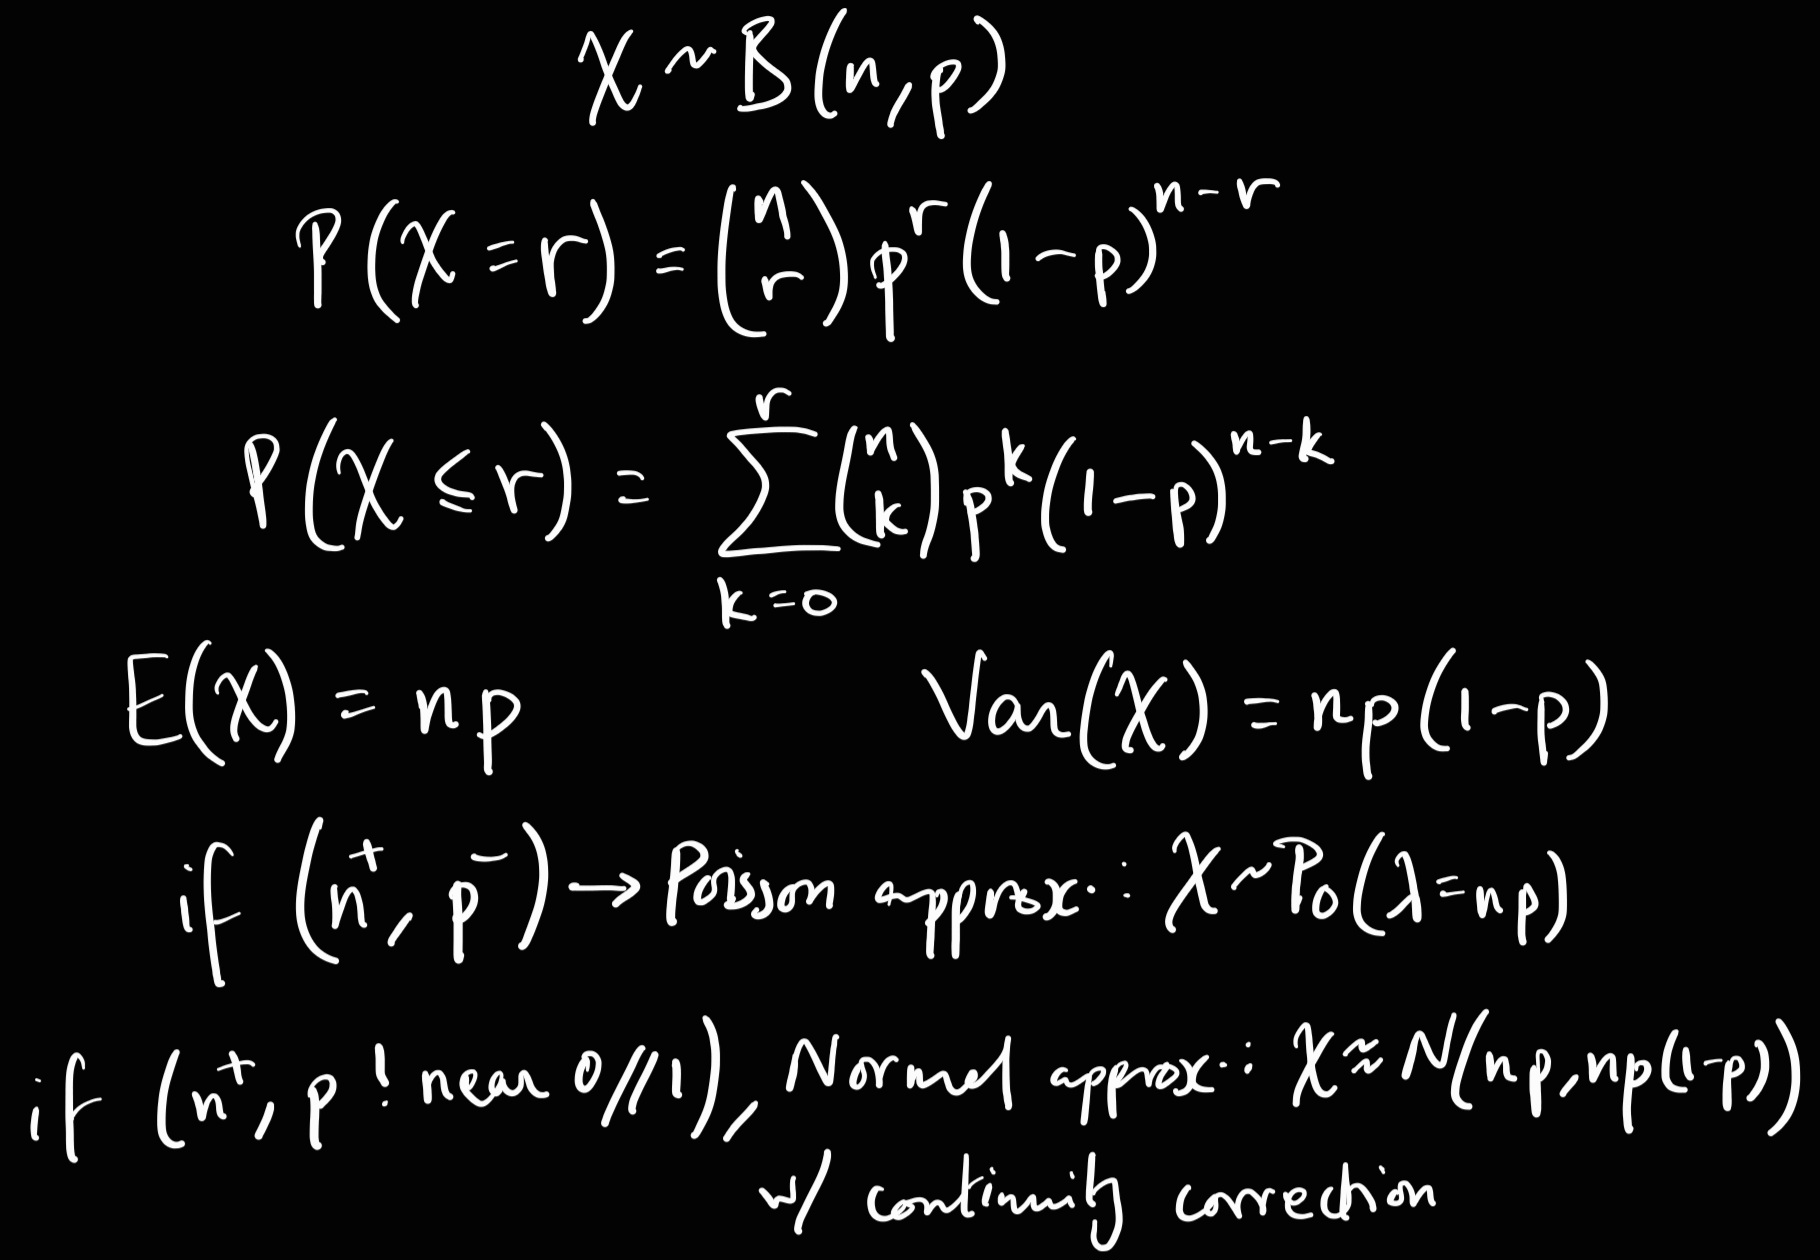 X ~ B(n,p)
P(X = r) = (n r) p^r (1-p)^{n-r}
P(X ≤ r) = ∑_{k=0}^{r} (n k) p^k (1-p)^{n-k}
E(X) = np Var(X) = np(1-p)
if (n⁺, p⁻) → Poisson approx.: X ~ Po(λ=np)
if (n⁺, p ! near 0//1), Normal approx.: X ≈ N(np, np(1-p))
w/ continuity correction